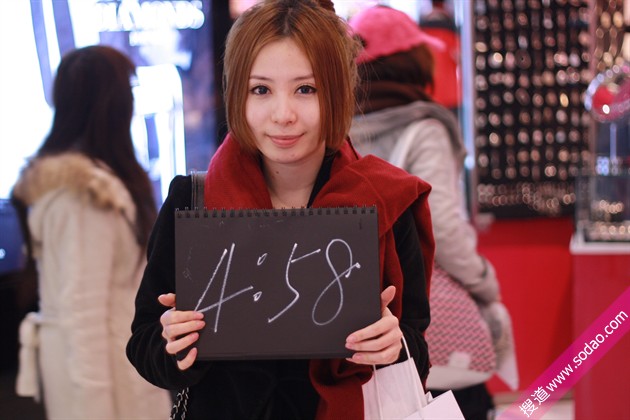 4:58
搜道www.sodao.com